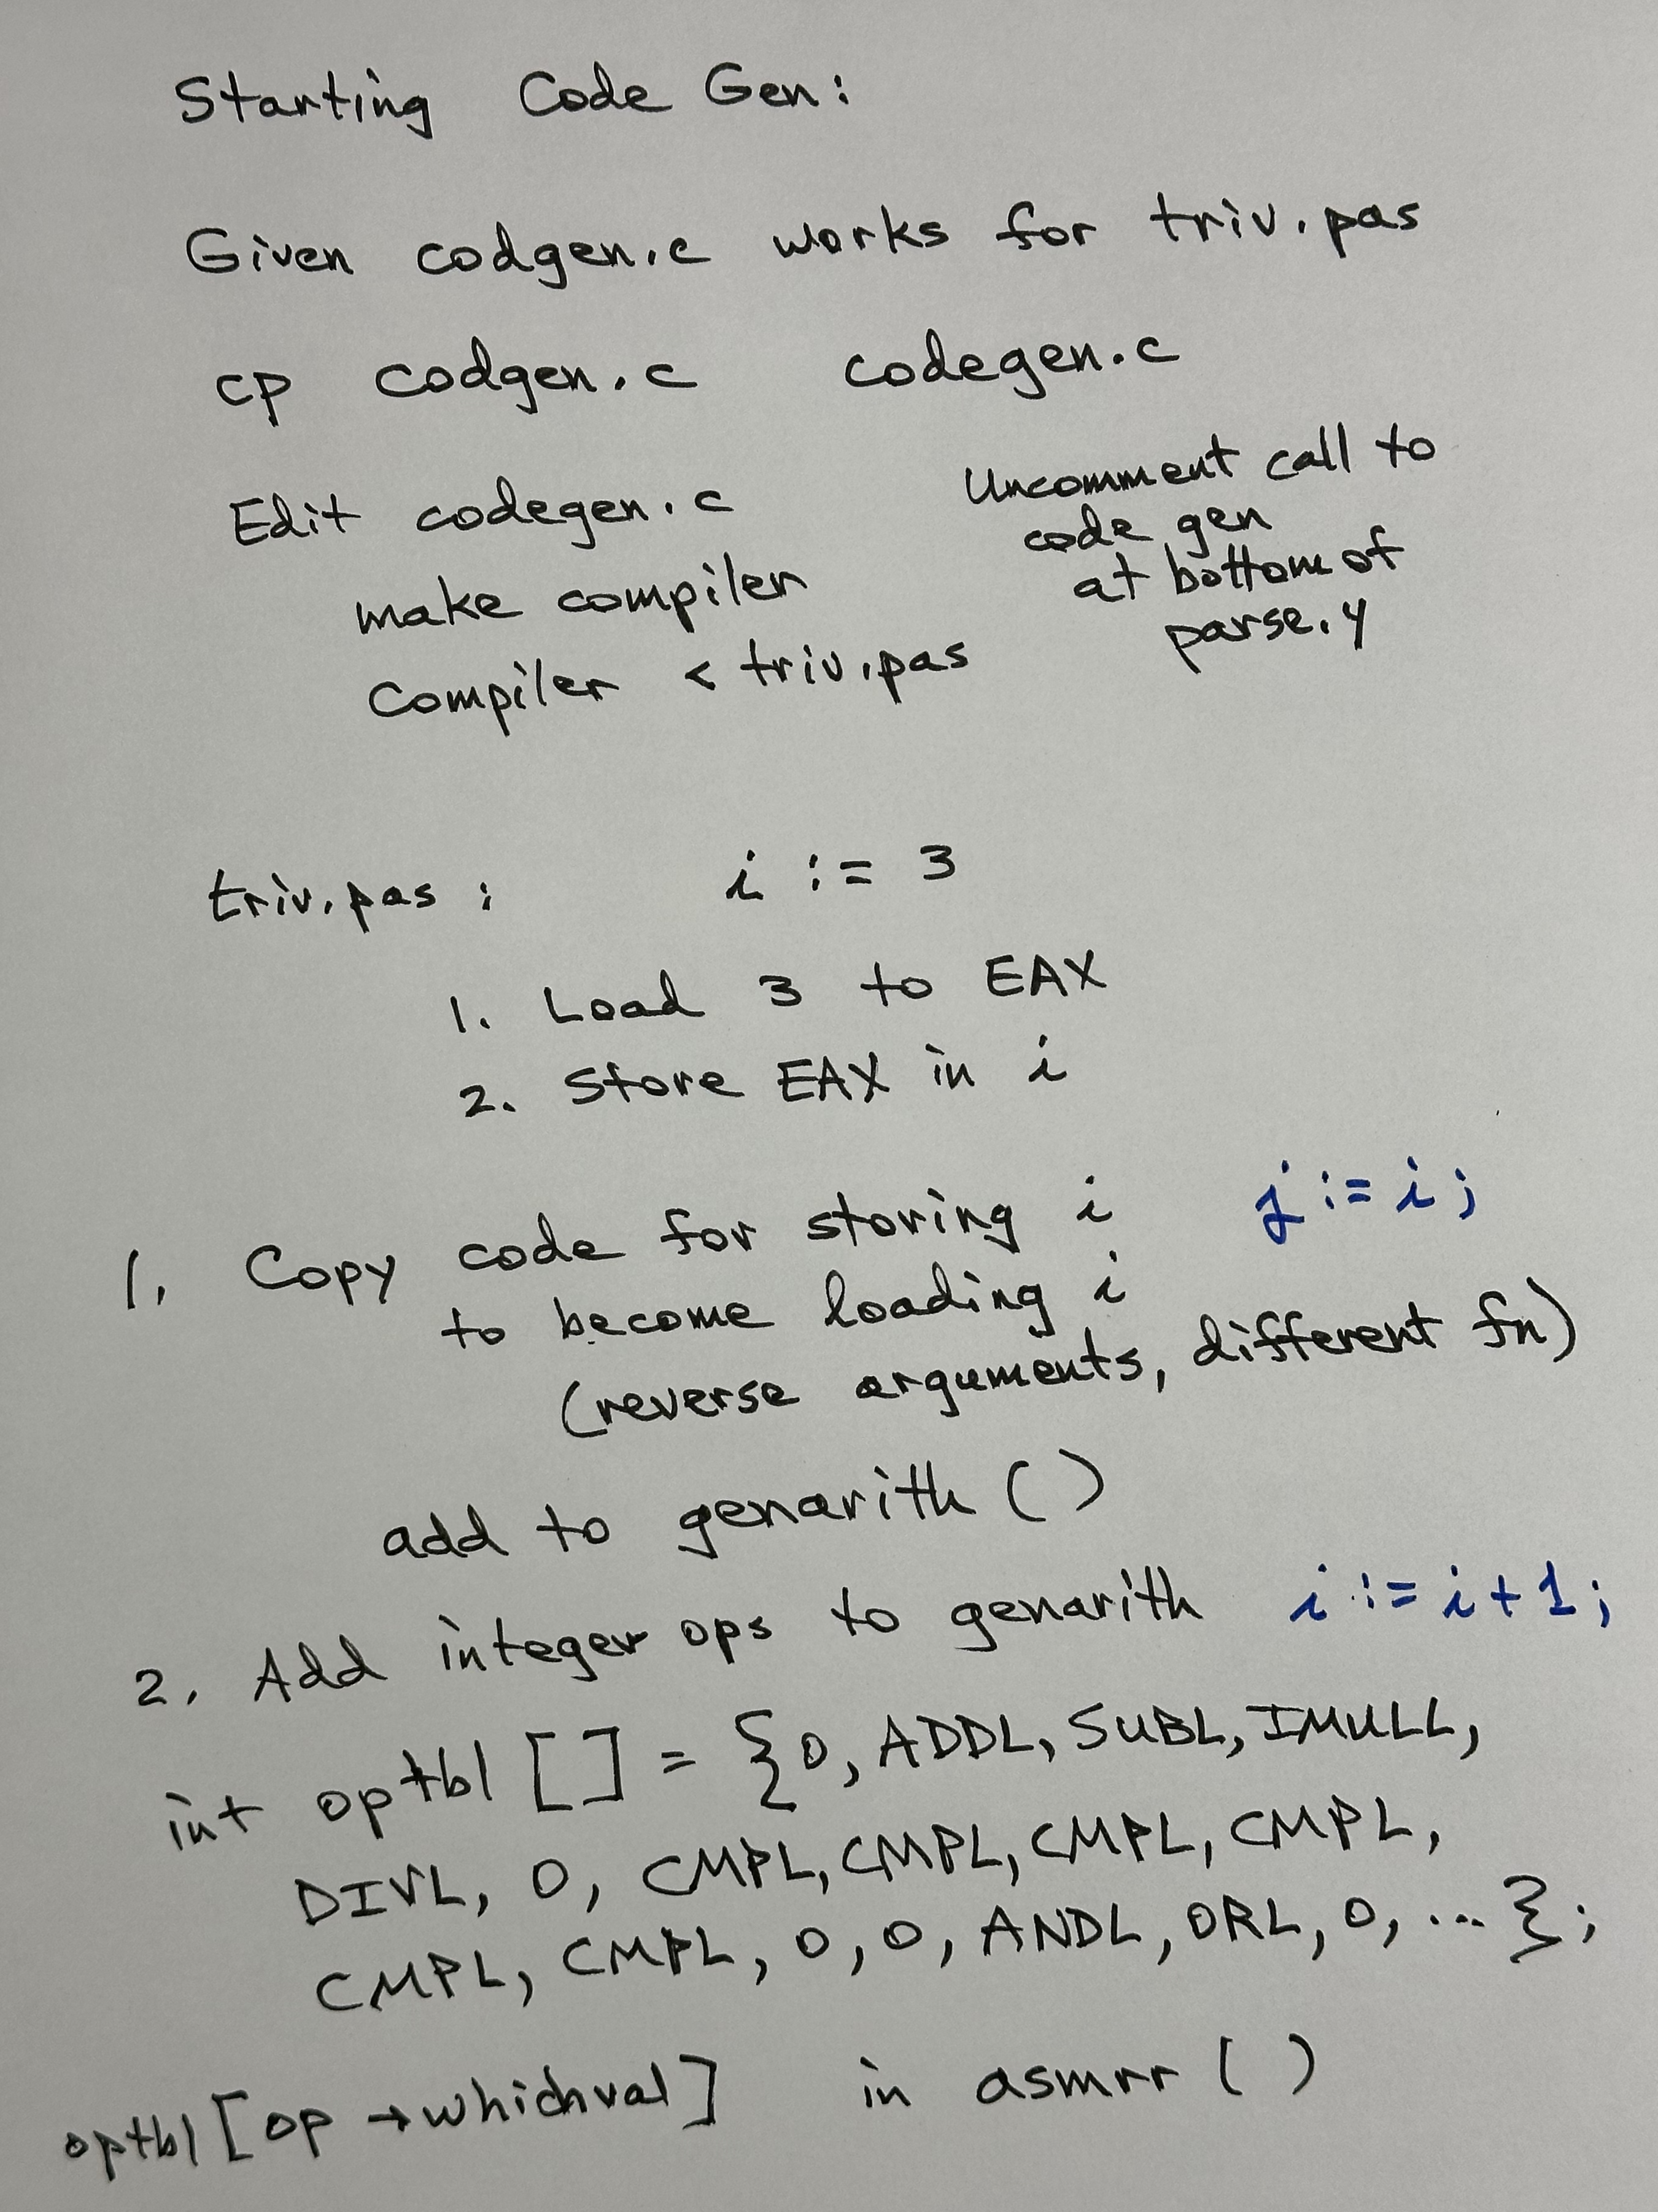 Starting Code Gen:
Given codgen.c works for triv.pas
cp codgen.c codegen.c
Edit codegen.c
make compiler
compiler < triv.pas
Uncomment call to
code gen
at bottom of
parse.y
triv.pas: i := 3
1. Load 3 to EAX
2. Store EAX in i
1. Copy code for storing i j := i;
to become loading i
(reverse arguments, different fn)
add to genarith ()
2. Add integer ops to genarith i := i + 1;
int optbl [] = {0, ADDL, SUBL, IMULL,
DIVL, 0, CMPL, CMPL, CMPL, CMPL,
CMPL, CMPL, 0, 0, ANDL, ORL, 0, ... };
optbl [op → whichval] in asmrr ()